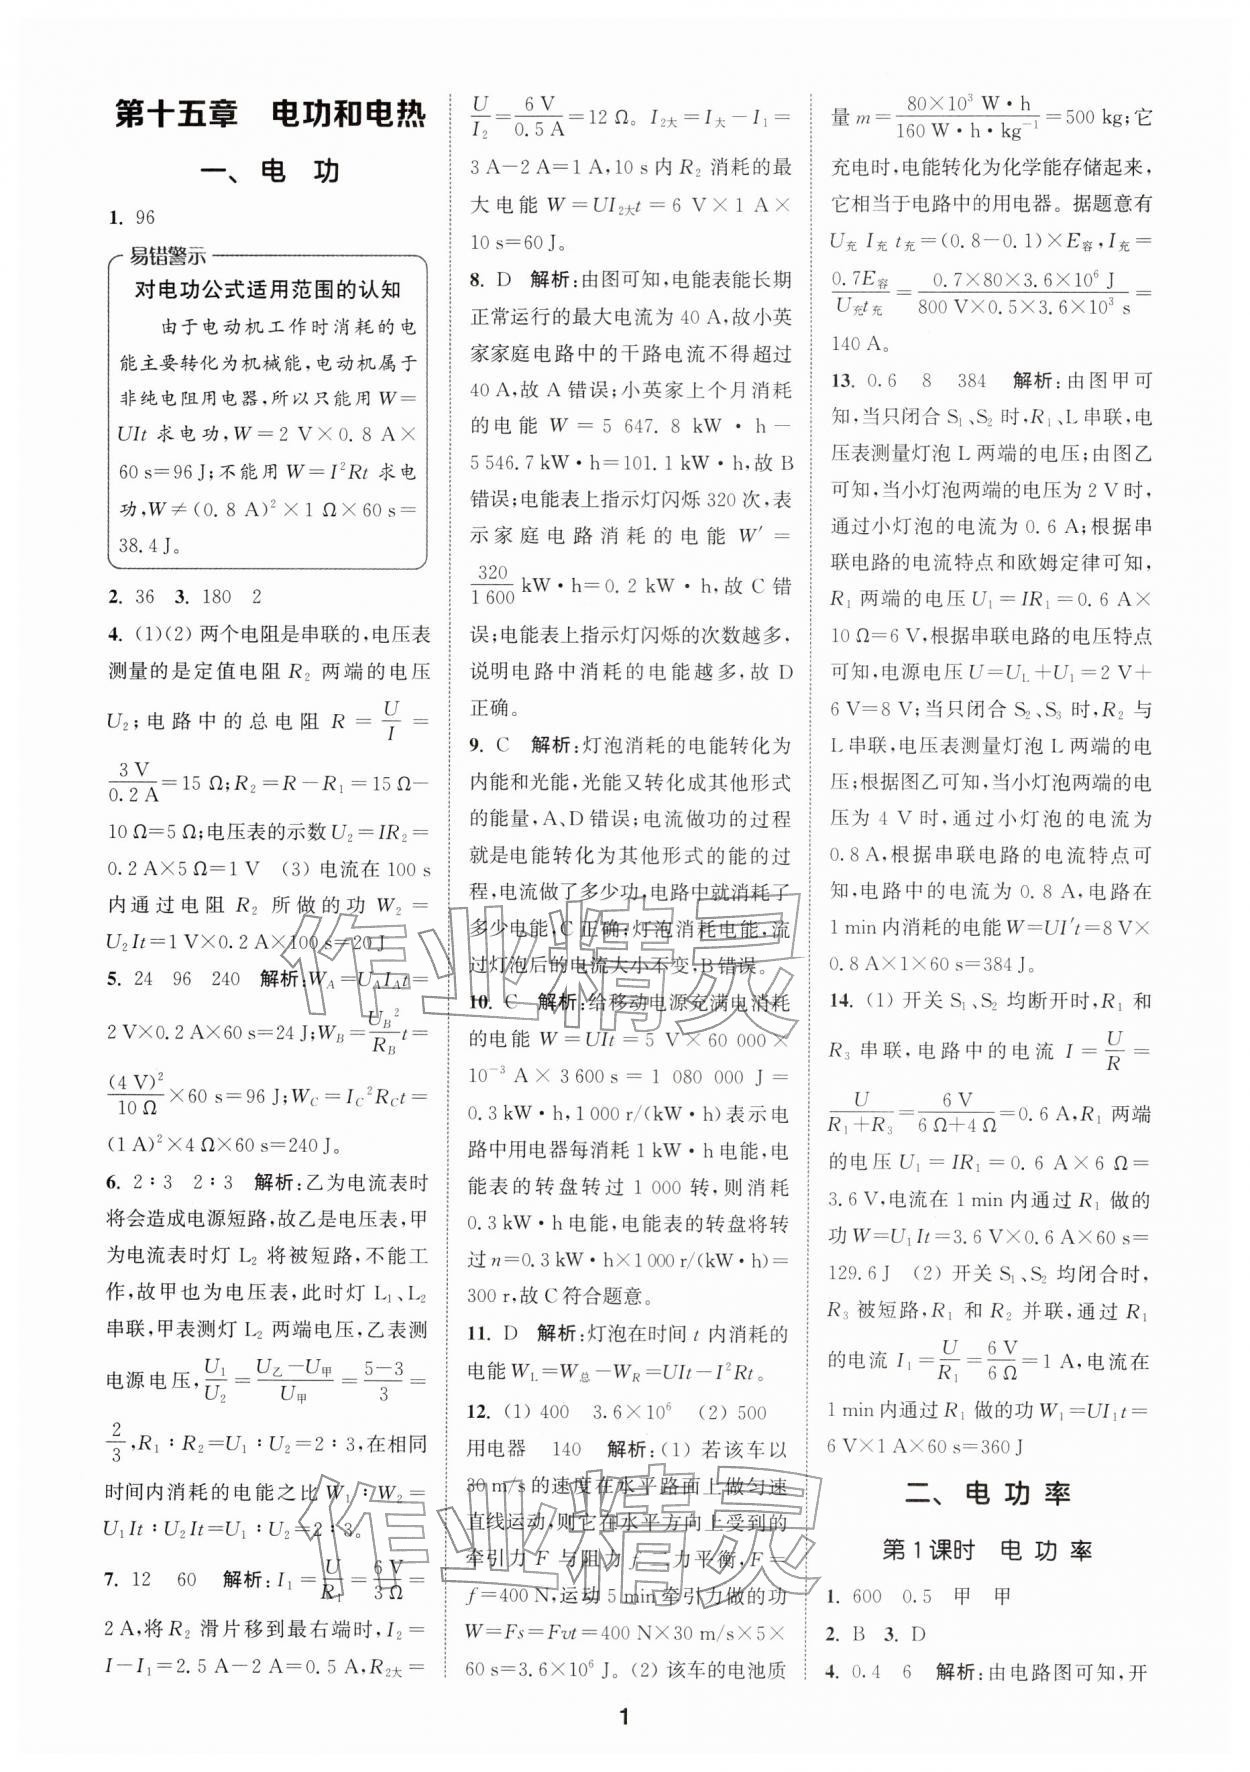 第十五章　电功和电热
一、电　功
1. 96
易错警示
对电功公式适用范围的认知
由于电动机工作时消耗的电
能主要转化为机械能,电动机属于
非纯电阻用电器,所以只能用 W=
UIt 求电功,W=2 V×0.8 A×
60 s=96 J;不能用 W=I²Rt 求电
功,W≠(0.8 A)²×1 Ω×60 s=
38.4 J。
2. 36　3. 180　2
4. (1)(2) 两个电阻是串联的,电压表
测量的是定值电阻 R₂ 两端的电压
U₂;电路中的总电阻 R=U/I=
3 V/0.2 A=15 Ω;R₂=R-R₁=15 Ω-
10 Ω=5 Ω;电压表的示数 U₂=IR₂=
0.2 A×5 Ω=1 V　(3) 电流在 100 s
内通过电阻 R₂ 所做的功 W₂=
U₂It=1 V×0.2 A×100 s=20 J
5. 24　96　240　解析:W_A=U_A I_A t=
2 V×0.2 A×60 s=24 J;W_B=U_B²/R_B t=
(4 V)²/10 Ω×60 s=96 J;W_C=I_C²R_C t=
(1 A)²×4 Ω×60 s=240 J。
6. 2∶3　2∶3　解析:乙为电流表时
将会造成电源短路,故乙是电压表,甲
为电流表时灯 L₂ 将被短路,不能工
作,故甲也为电压表,此时灯 L₁、L₂
串联,甲表测灯 L₂ 两端电压,乙表测
电源电压,U₁/U₂=(U乙-U甲)/U甲=(5-3)/3=
2/3,R₁∶R₂=U₁∶U₂=2∶3,在相同
时间内消耗的电能之比 W₁∶W₂=
U₁It∶U₂It=U₁∶U₂=2∶3。
7. 12　60　解析:I₁=U/R₁=6 V/3 Ω=
2 A,将 R₂ 滑片移到最右端时,I₂=
I-I₁=2.5 A-2 A=0.5 A,R₂大=
U/I₂=6 V/0.5 A=12 Ω。I₂大=I大-I₁=
3 A-2 A=1 A,10 s内 R₂ 消耗的最
大电能 W=UI₂大t=6 V×1 A×
10 s=60 J。
8. D　解析:由图可知,电能表能长期
正常运行的最大电流为 40 A,故小英
家家庭电路中的干路电流不得超过
40 A,故 A 错误;小英家上个月消耗
的电能 W=5 647.8 kW·h-
5 546.7 kW·h=101.1 kW·h,故 B
错误;电能表上指示灯闪烁 320 次,表
示家庭电路消耗的电能 W′=
320/1 600 kW·h=0.2 kW·h,故 C 错
误;电能表上指示灯闪烁的次数越多,
说明电路中消耗的电能越多,故 D
正确。
9. C　解析:灯泡消耗的电能转化为
内能和光能,光能又转化成其他形式
的能量,A、D错误;电流做功的过程
就是电能转化为其他形式的能的过
程,电流做了多少功,电路中就消耗了
多少电能,C正确;灯泡消耗电能,流
过灯泡后的电流大小不变,B错误。
10. C　解析:给移动电源充满电消耗
的电能 W=UIt=5 V×60 000×
10⁻³ A×3 600 s=1 080 000 J=
0.3 kW·h,1 000 r/(kW·h)表示电
路中用电器每消耗 1 kW·h电能,电
能表的转盘转过 1 000 转,则消耗
0.3 kW·h电能,电能表的转盘将转
过 n=0.3 kW·h×1 000 r/(kW·h)=
300 r,故C符合题意。
11. D　解析:灯泡在时间 t 内消耗的
电能 W_L=W总-W_R=UIt-I²Rt。
12. (1) 400　3.6×10⁶　(2) 500
用电器　140　解析:(1) 若该车以
30 m/s的速度在水平路面上做匀速
直线运动,则它在水平方向上受到的
牵引力 F 与阻力 f 二力平衡,F=
f=400 N,运动 5 min牵引力做的功
W=Fs=Fvt=400 N×30 m/s×5×
60 s=3.6×10⁶ J。(2) 该车的电池质
量 m=80×10³ W·h/160 W·h·kg⁻¹=500 kg;它
充电时,电能转化为化学能存储起来,
它相当于电路中的用电器。据题意有
U充 I充 t充=(0.8-0.1)×E容,I充=
0.7E容/U充t充=0.7×80×3.6×10⁶ J/800 V×0.5×3.6×10³ s=
140 A。
13. 0.6　8　384　解析:由图甲可
知,当只闭合 S₁、S₂ 时,R₁、L串联,电
压表测量灯泡 L 两端的电压;由图乙
可知,当小灯泡两端的电压为 2 V时,
通过小灯泡的电流为 0.6 A;根据串
联电路的电流特点和欧姆定律可知,
R₁ 两端的电压 U₁=IR₁=0.6 A×
10 Ω=6 V,根据串联电路的电压特点
可知,电源电压 U=U_L+U₁=2 V+
6 V=8 V;当只闭合 S₂、S₃ 时,R₂ 与
L串联,电压表测量灯泡 L 两端的电
压;根据图乙可知,当小灯泡两端的电
压为 4 V 时,通过小灯泡的电流为
0.8 A,根据串联电路的电流特点可
知,电路中的电流为 0.8 A,电路在
1 min内消耗的电能 W=UI′t=8 V×
0.8 A×1×60 s=384 J。
14. (1) 开关 S₁、S₂ 均断开时,R₁ 和
R₃ 串联,电路中的电流 I=U/R=
U/(R₁+R₃)=6 V/(6 Ω+4 Ω)=0.6 A,R₁ 两端
的电压 U₁=IR₁=0.6 A×6 Ω=
3.6 V,电流在 1 min内通过 R₁ 做的
功 W=U₁It=3.6 V×0.6 A×60 s=
129.6 J　(2) 开关 S₁、S₂ 均闭合时,
R₃ 被短路,R₁ 和 R₂ 并联,通过 R₁
的电流 I₁=U/R₁=6 V/6 Ω=1 A,电流在
1 min内通过 R₁ 做的功 W₁=UI₁t=
6 V×1 A×60 s=360 J
二、电 功 率
第1课时　电 功 率
1. 600　0.5　甲　甲
2. B　3. D
4. 0.4　6　解析:由电路图可知,开
1
作业精灵
作业精灵